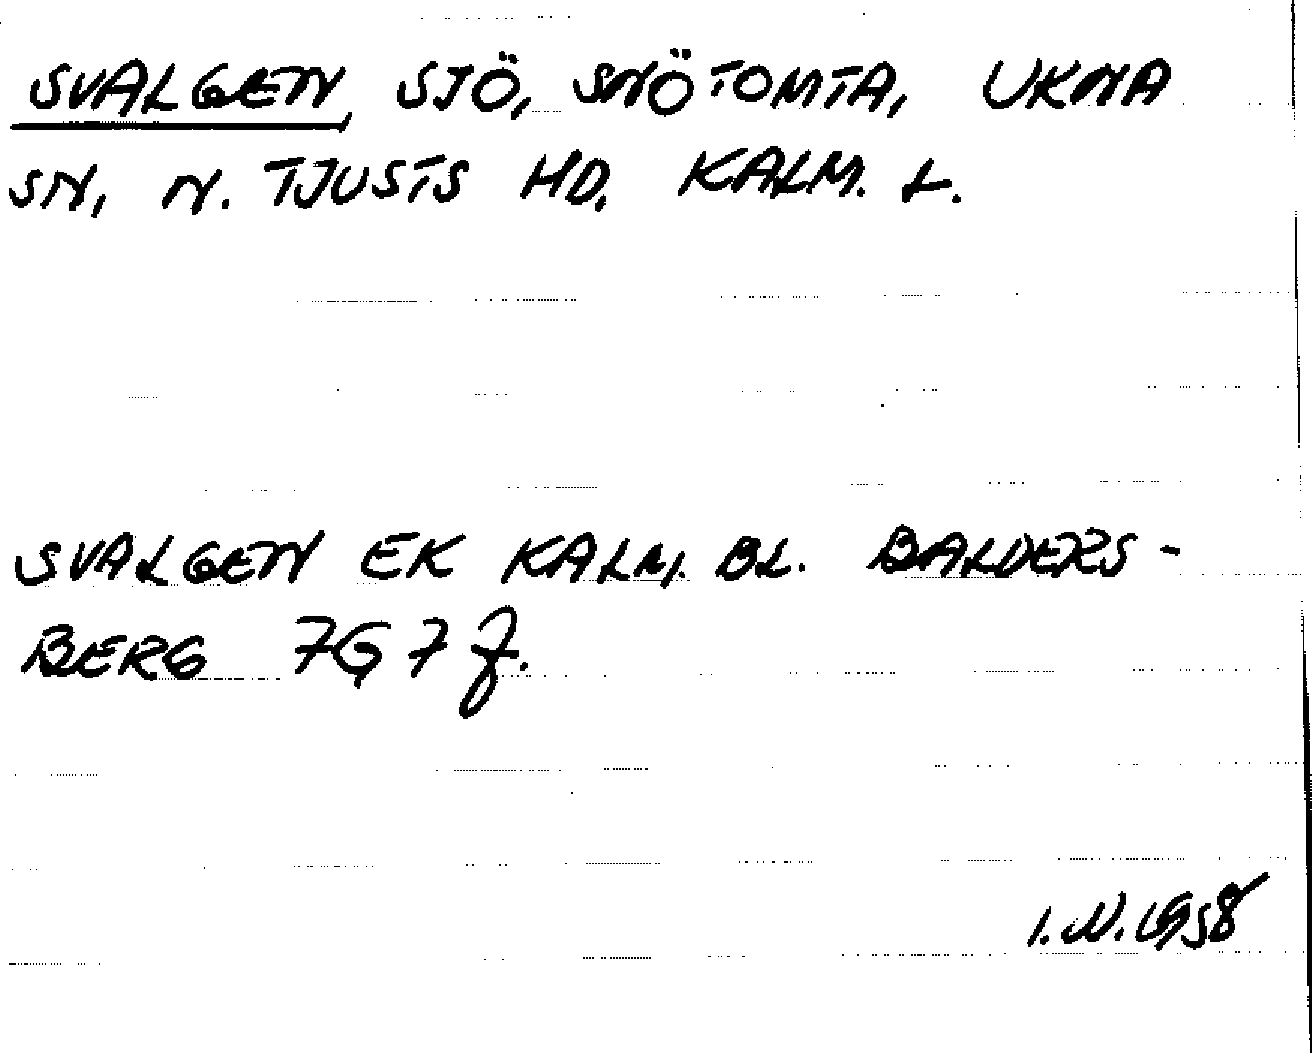 SVALGEN, SJÖ, SNÖTOMTA, UKNA
SN, N. TJUSTS HD. KALM. L.
SVALGEN EK KALM. BL. BALDERS-
BERG 7G7f.
I.N. 1958